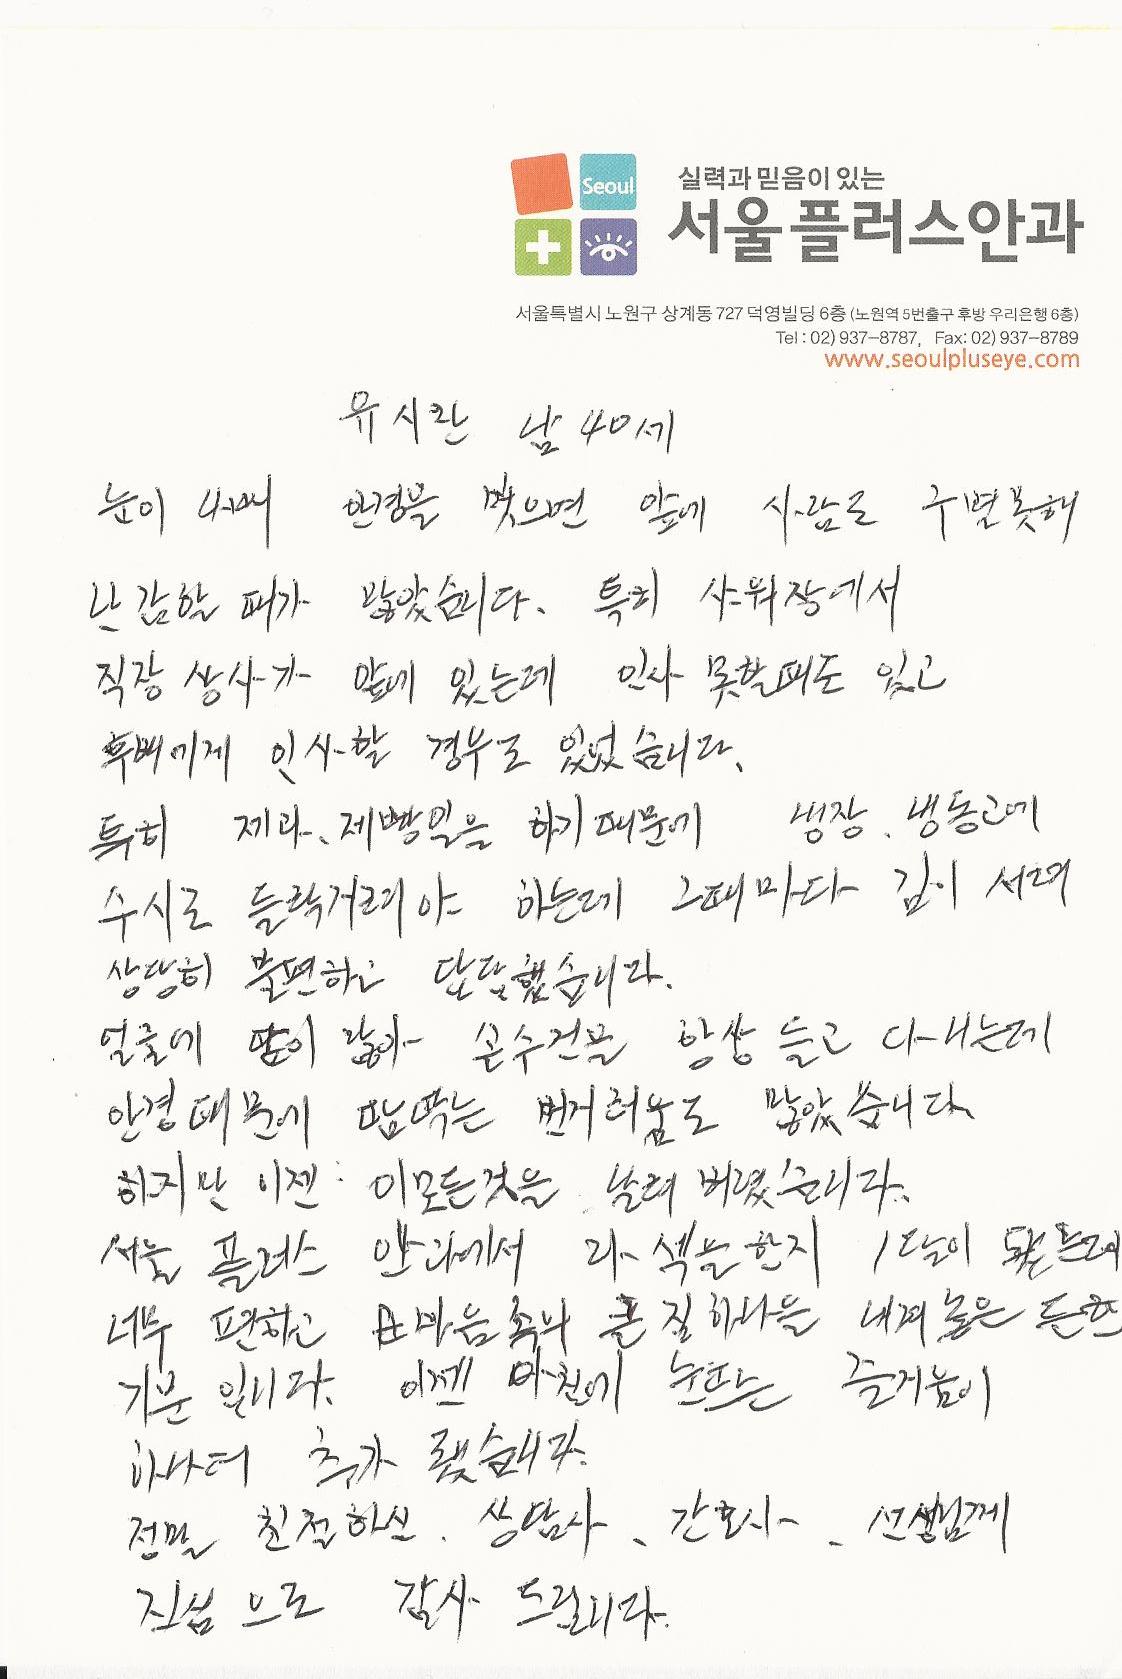 Seoul
실력과 믿음이 있는
서울플러스안과
서울특별시 노원구 상계동 727 덕영빌딩 6층 (노원역 5번출구 후방 우리은행 6층)
Tel : 02) 937-8787, Fax: 02) 937-8789
www.seoulpluseye.com
유시관 남 40세
눈이 나빠 안경을 벗으면 앞에 사람도 구별못해
난감할 때가 많았습니다. 특히 샤워장에서
직장 상사가 앞에 있는데 인사 못할때도 있고
후배에게 인사할 경우도 있었습니다.
특히 제과、제빵일을 하기때문에 냉장、냉동고에
수시로 들락거려야 하는데 그때마다 김이 서려
상당히 불편하고 답답했습니다.
얼굴에 땀이 많아 손수건을 항상 들고 다니는데
안경때문에 땀딱는 번거러움도 많았습니다
하지만 이젠 이모든것을 날려 버렸습니다.
서울 플러스 안과에서 라섹을한지 1달이 됐는데
너무 편하고 마음속의 큰 짐하나를 내려놓은 듯한
기분 입니다. 이젠 아침에 눈뜨는 즐거움이
하나더 추가 됐습니다.
정말 친절하신、상담사、간호사、선생님께
진심으로 감사 드립니다.